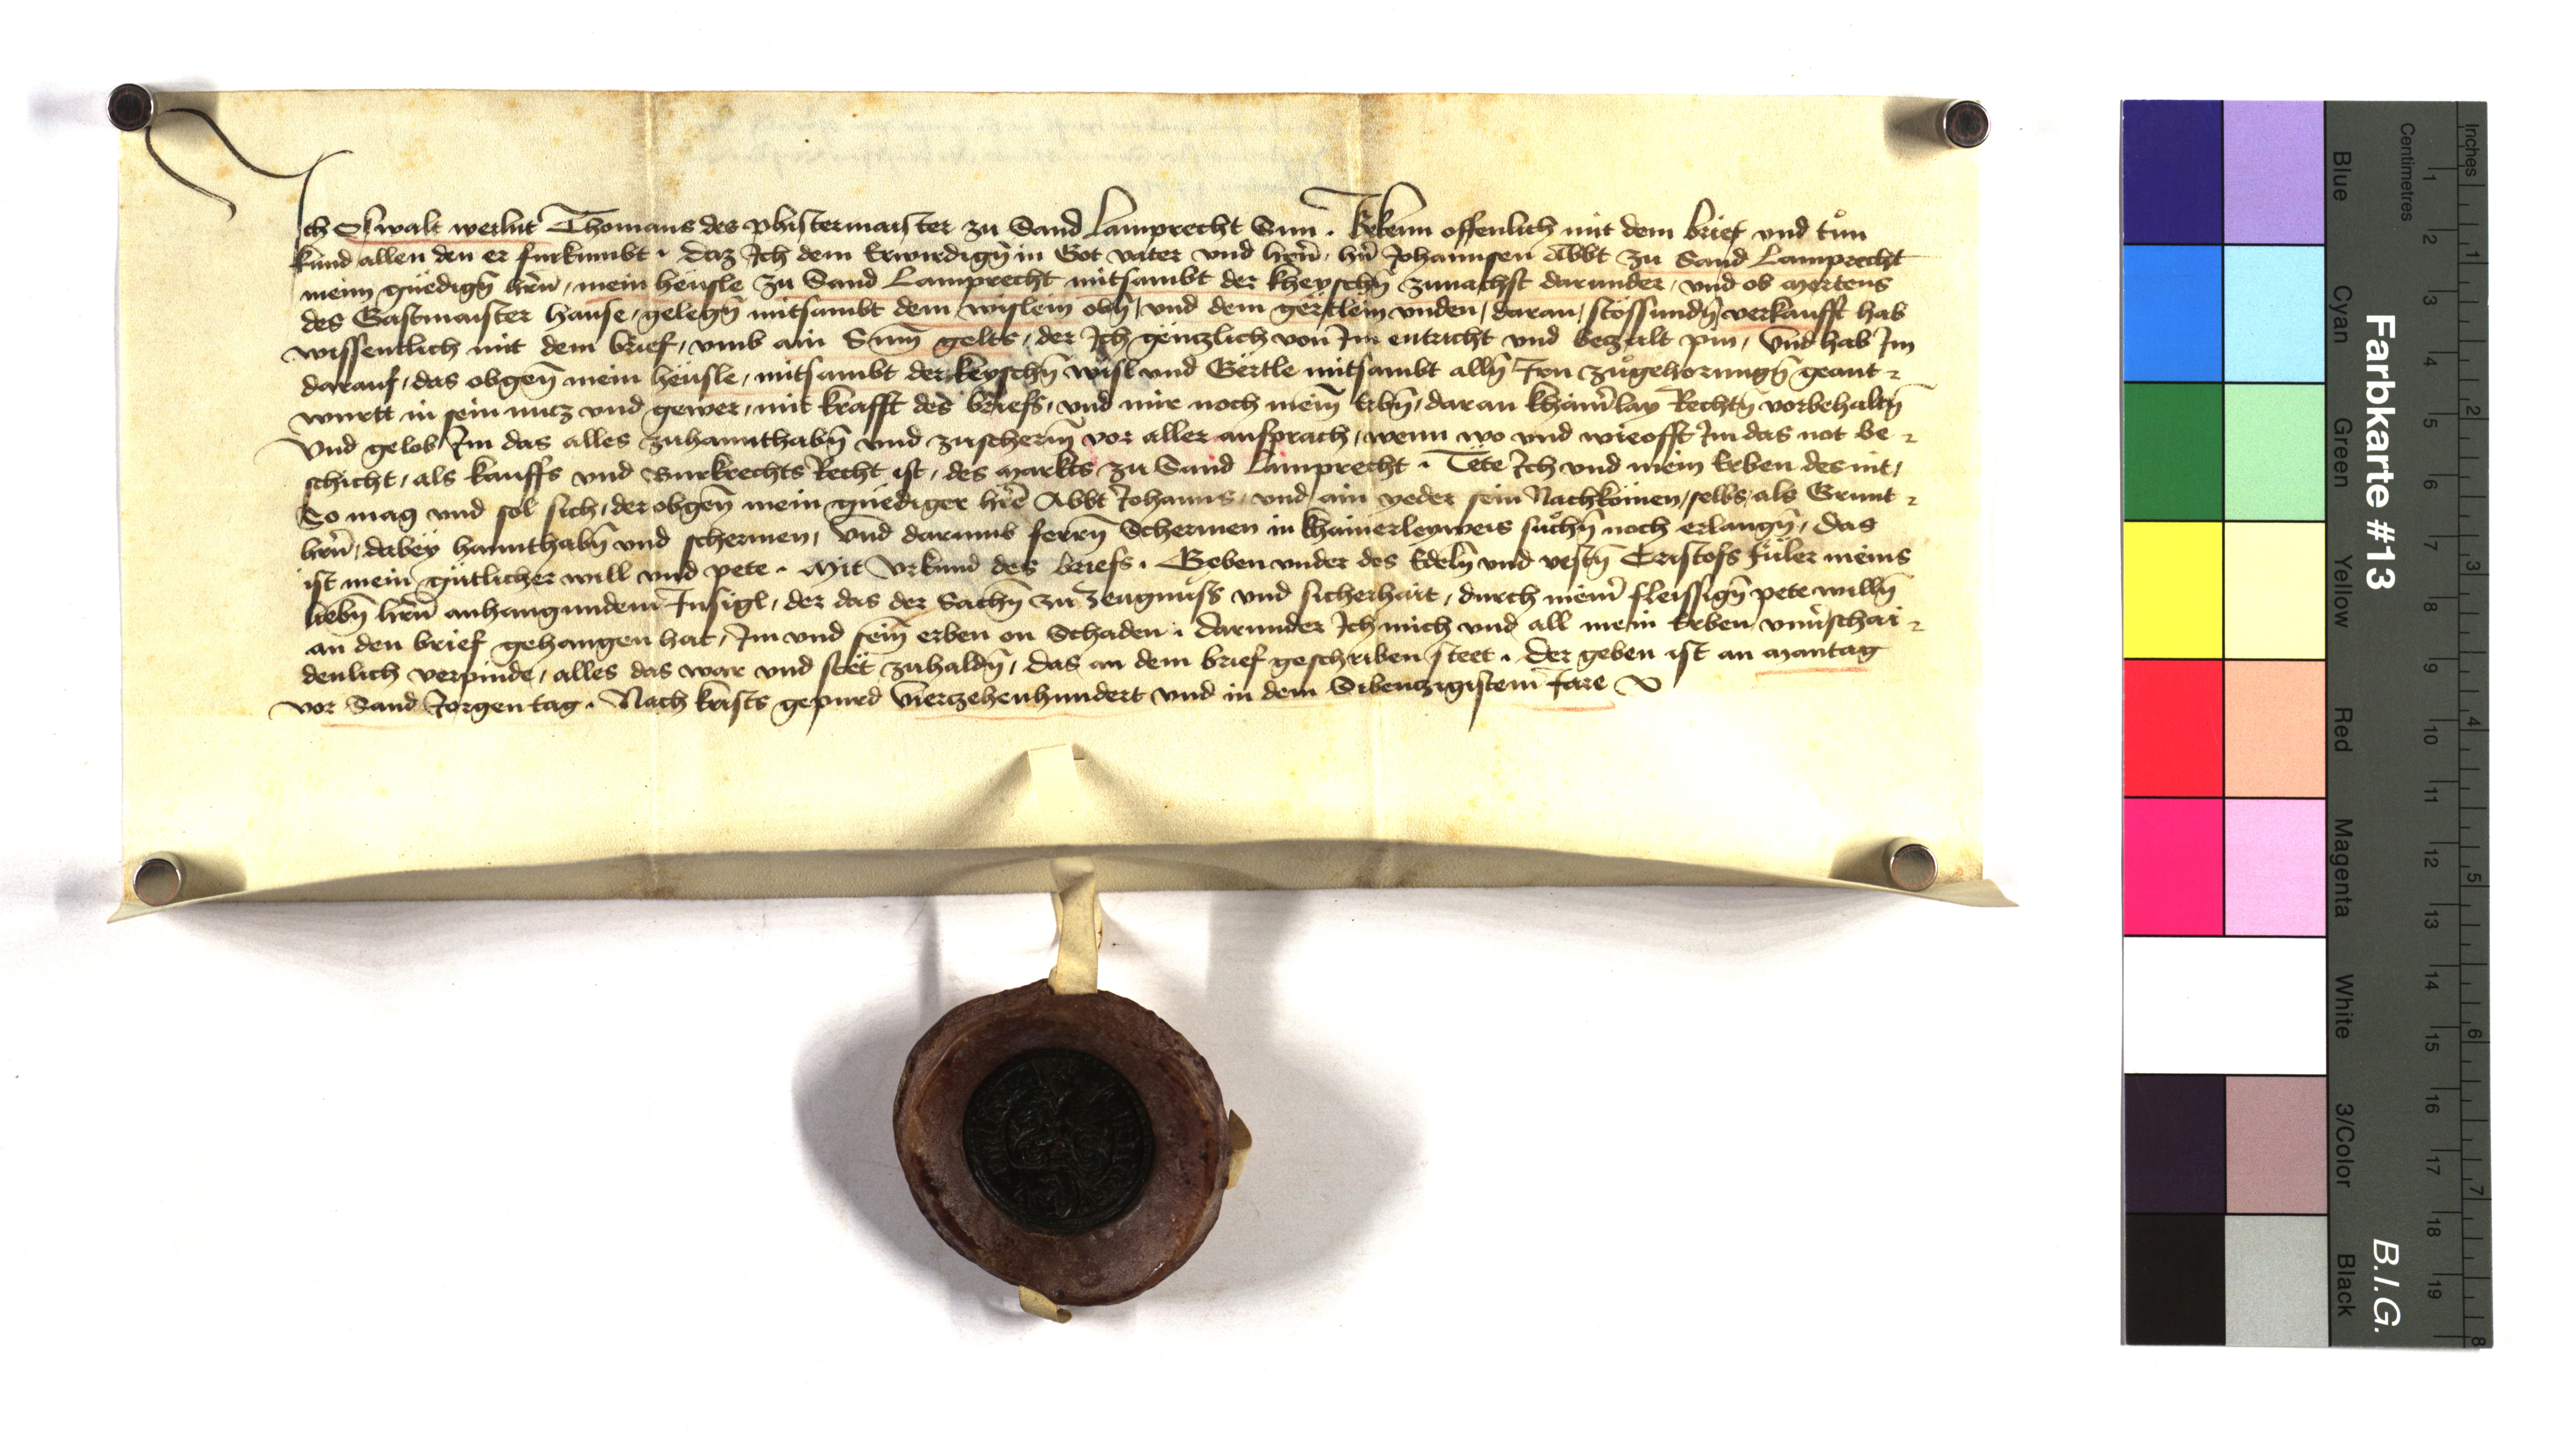 Ich Oswalt weilnt Thomans des phistermaister zu Sand Lamprecht Sun . Bekenn offenlich mit dem brief vnd tůn
kund allen den er furkumbt . daz Ich dem Erwirdigñ in Got vater vnd herñ, hñ Johannsen Abbt zu Sand Lamprecht
meim gnëdigñ herñ, mein heüsle zu Sand Lamprecht mitsambt der kheyschñ zunachst darunder, vnd ob Mertens
des Gastmaister hause, gelegñ mitsambt dem wislein obñ, vnd dem gërtlein vnden, daran, stössundñ, verkaufft hab
wissentlich mit dem brief, vmb ain Sum̄ gelts, der Ich gëntzlich von Im entricht vnd betzalt pin, Vnd hab Im
darauf, das obgeñ mein heüsle, mitsambt der keyschñ wisl vnd Gërtle mitsambt allñ Irn zůgehorungñ geant-
wurtt in sein nutz vnd gewer, mit krafft des briefs, vnd mir noch meiñ Erbñ, daran khainr̃lay Rechtñ vorbehaltñ
Vnd gelob Im das alles zuhannthabñ vnd zuscherm̃ vor aller ansprach, wenn wo vnd wieofft Im das not be-
schicht, als kauffs vnd Burkrechts Recht ist, des Markts zu Sand Lamprecht . Tëte Ich vnd mein Erben des nit,
So mag vnd sol sich, der obgeñ mein gnëdiger her̃ Abbt Johanns, vnd ain yeder sein Nachkömen, selbs, als Grunt-
herñ, dabey hannthabñ vnd schermen, Vnd darumb ferrñ Schermen in khainerleyweis sůchñ noch erlangñ, das
ist mein gütlicher will vnd pete . Mit Vrkund des briefs . Geben vnder des Edelñ vnd vestñ Cristofs Füler meins
liebñ herñ anhangundem Insigl, der das der Sachñ zu Zeugnüss vnd sicherhait, durch meinr̃ fleissigñ pete willñ
an den brief gehangen hat, Im vnd seiñ erben on Schaden . darunder Ich mich vnd all mein Erben vnuerschai-
denlich verpinde, alles das war vnd stët zuhaldñ, das an dem brief geschriben steet . Der geben ist an Mantag
vor Sand Jorgen tag . Nach krists gepurd Vierzehenhundert vnd in dem Sibentzigistem Jare
Farbkarte #13
B.I.G.
Blue
Cyan
Green
Yellow
Red
Magenta
White
3/Color
Black
Centimetres
1 2 3 4 5 6 7 8 9 10 11 12 13 14 15 16 17 18 19
Inches
1 2 3 4 5 6 7 8